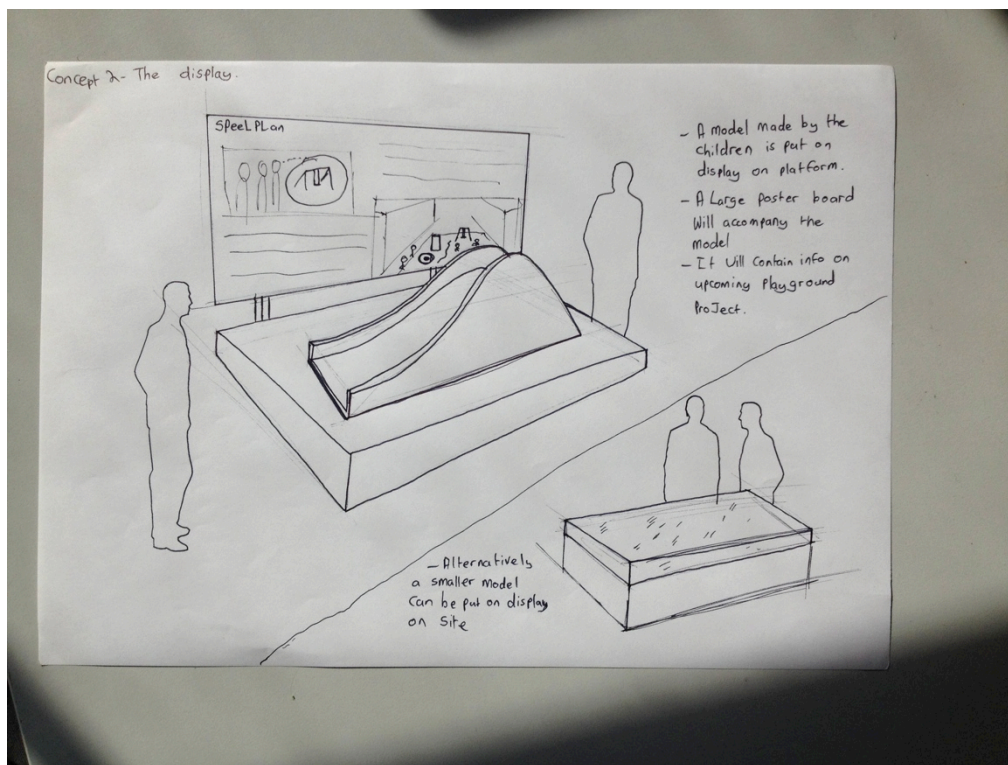 Concept 2- The display.
SPeeL PLan
- A model made by the
children is put on
display on platform.
- A Large poster board
Will accompany the
model
- It Will Contain info on
upcoming Playground
ProJect.
- Alternatively
a smaller model
Can be put on display
on Site